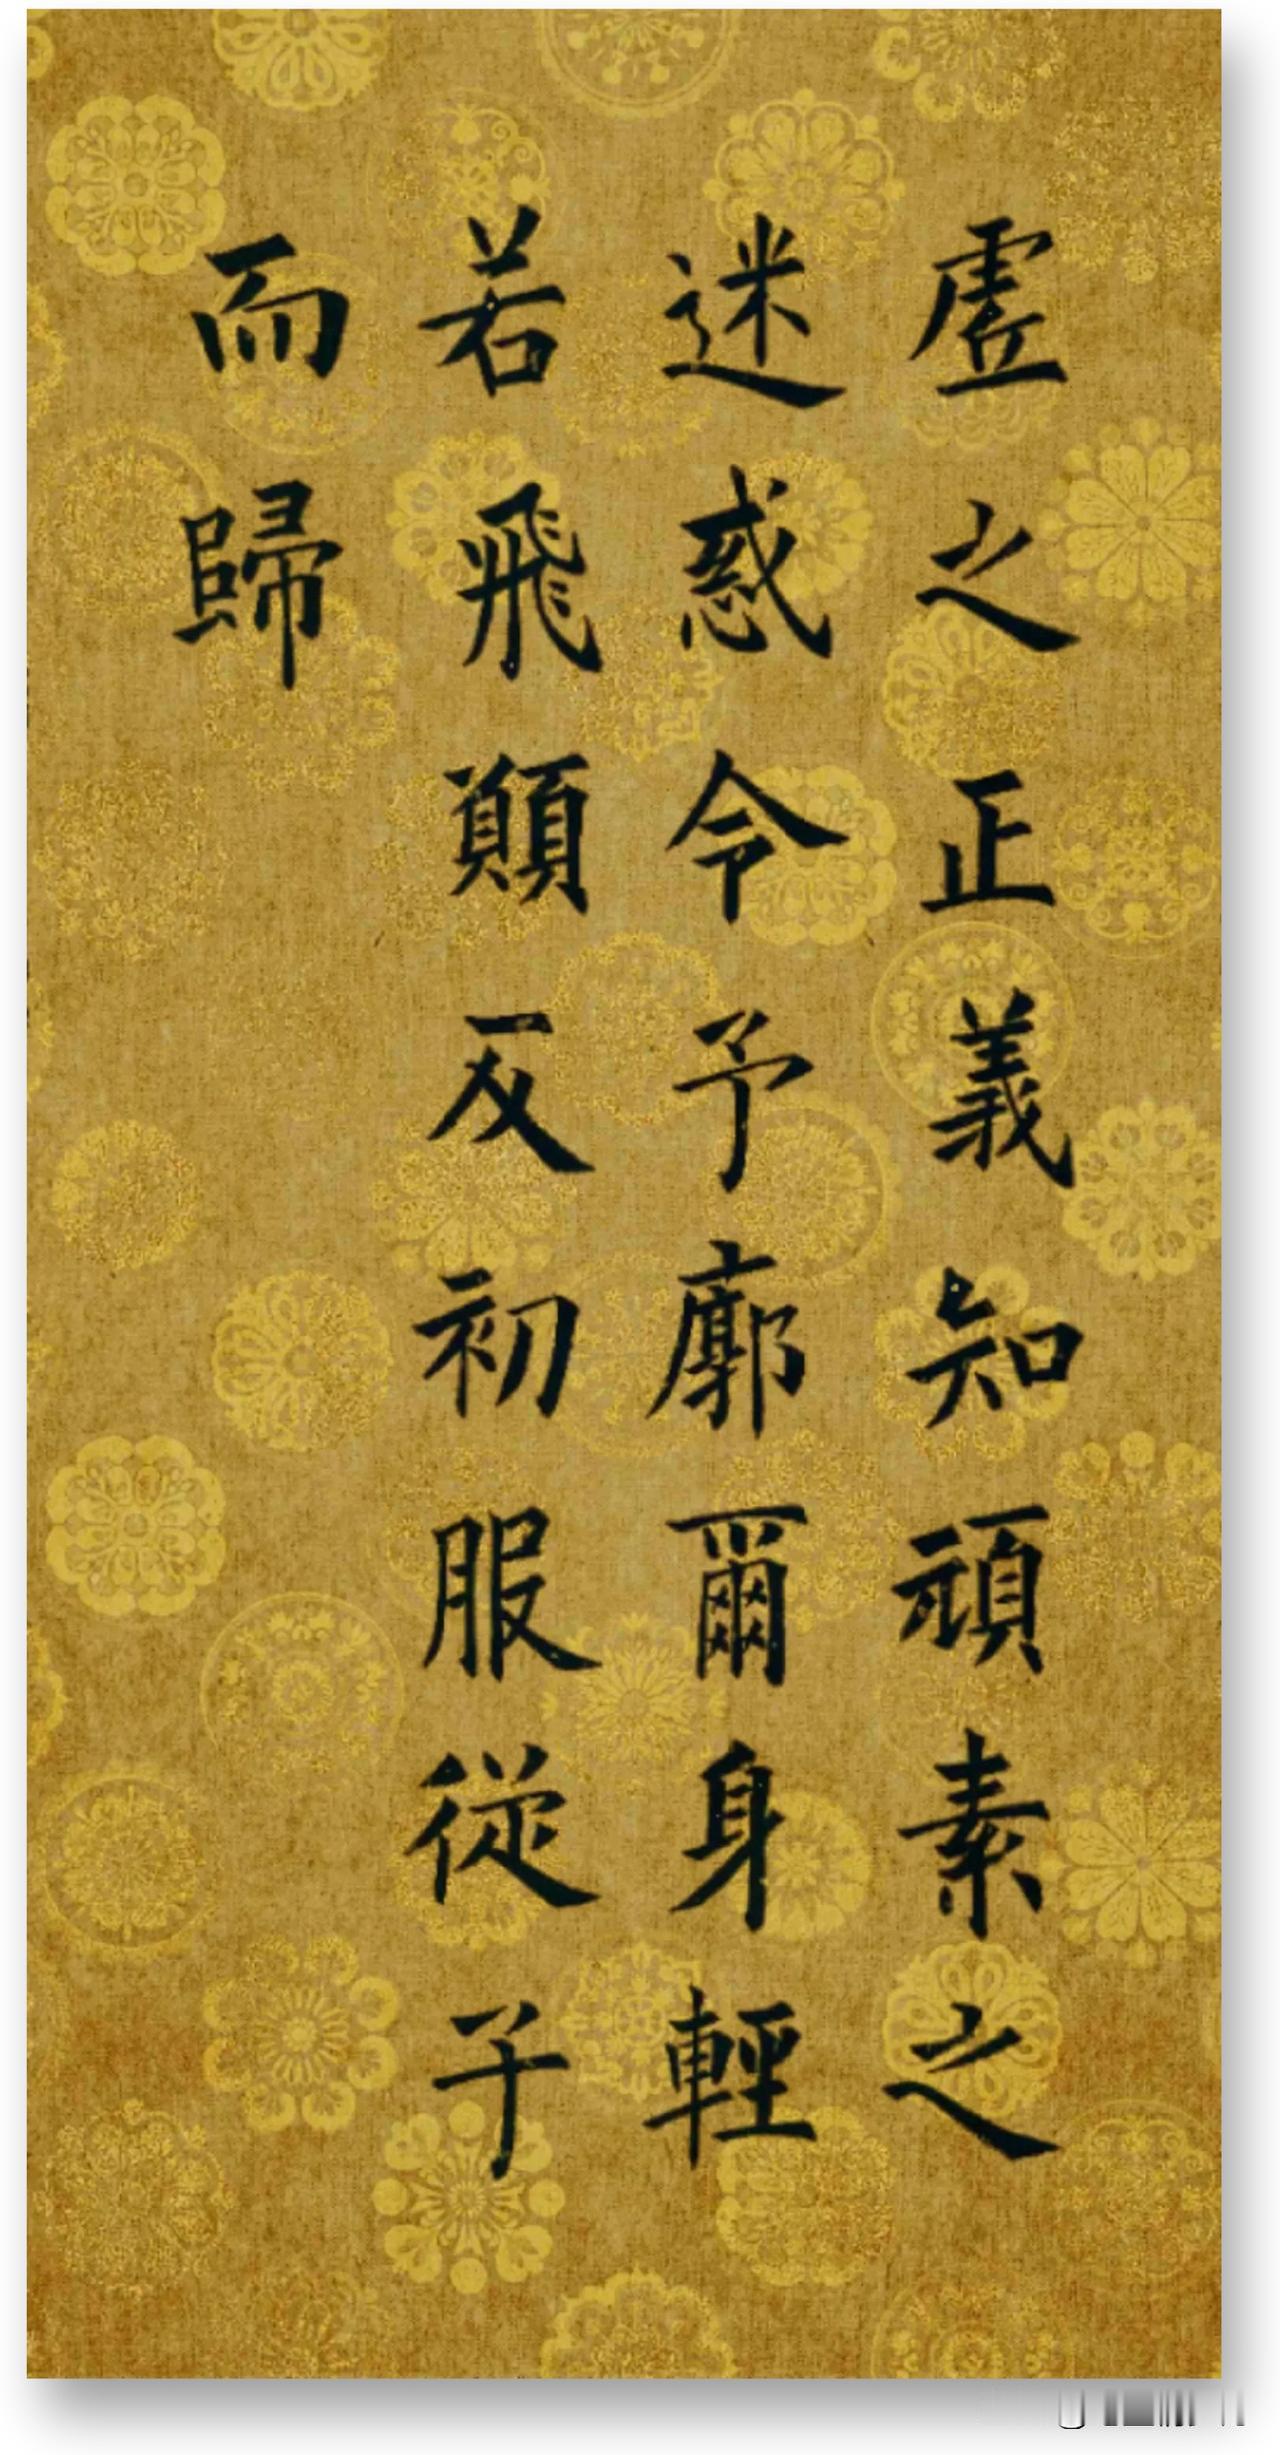 虛之正義知頑素之
迷惑令予廓爾身輕
若飛願反初服從子
而歸